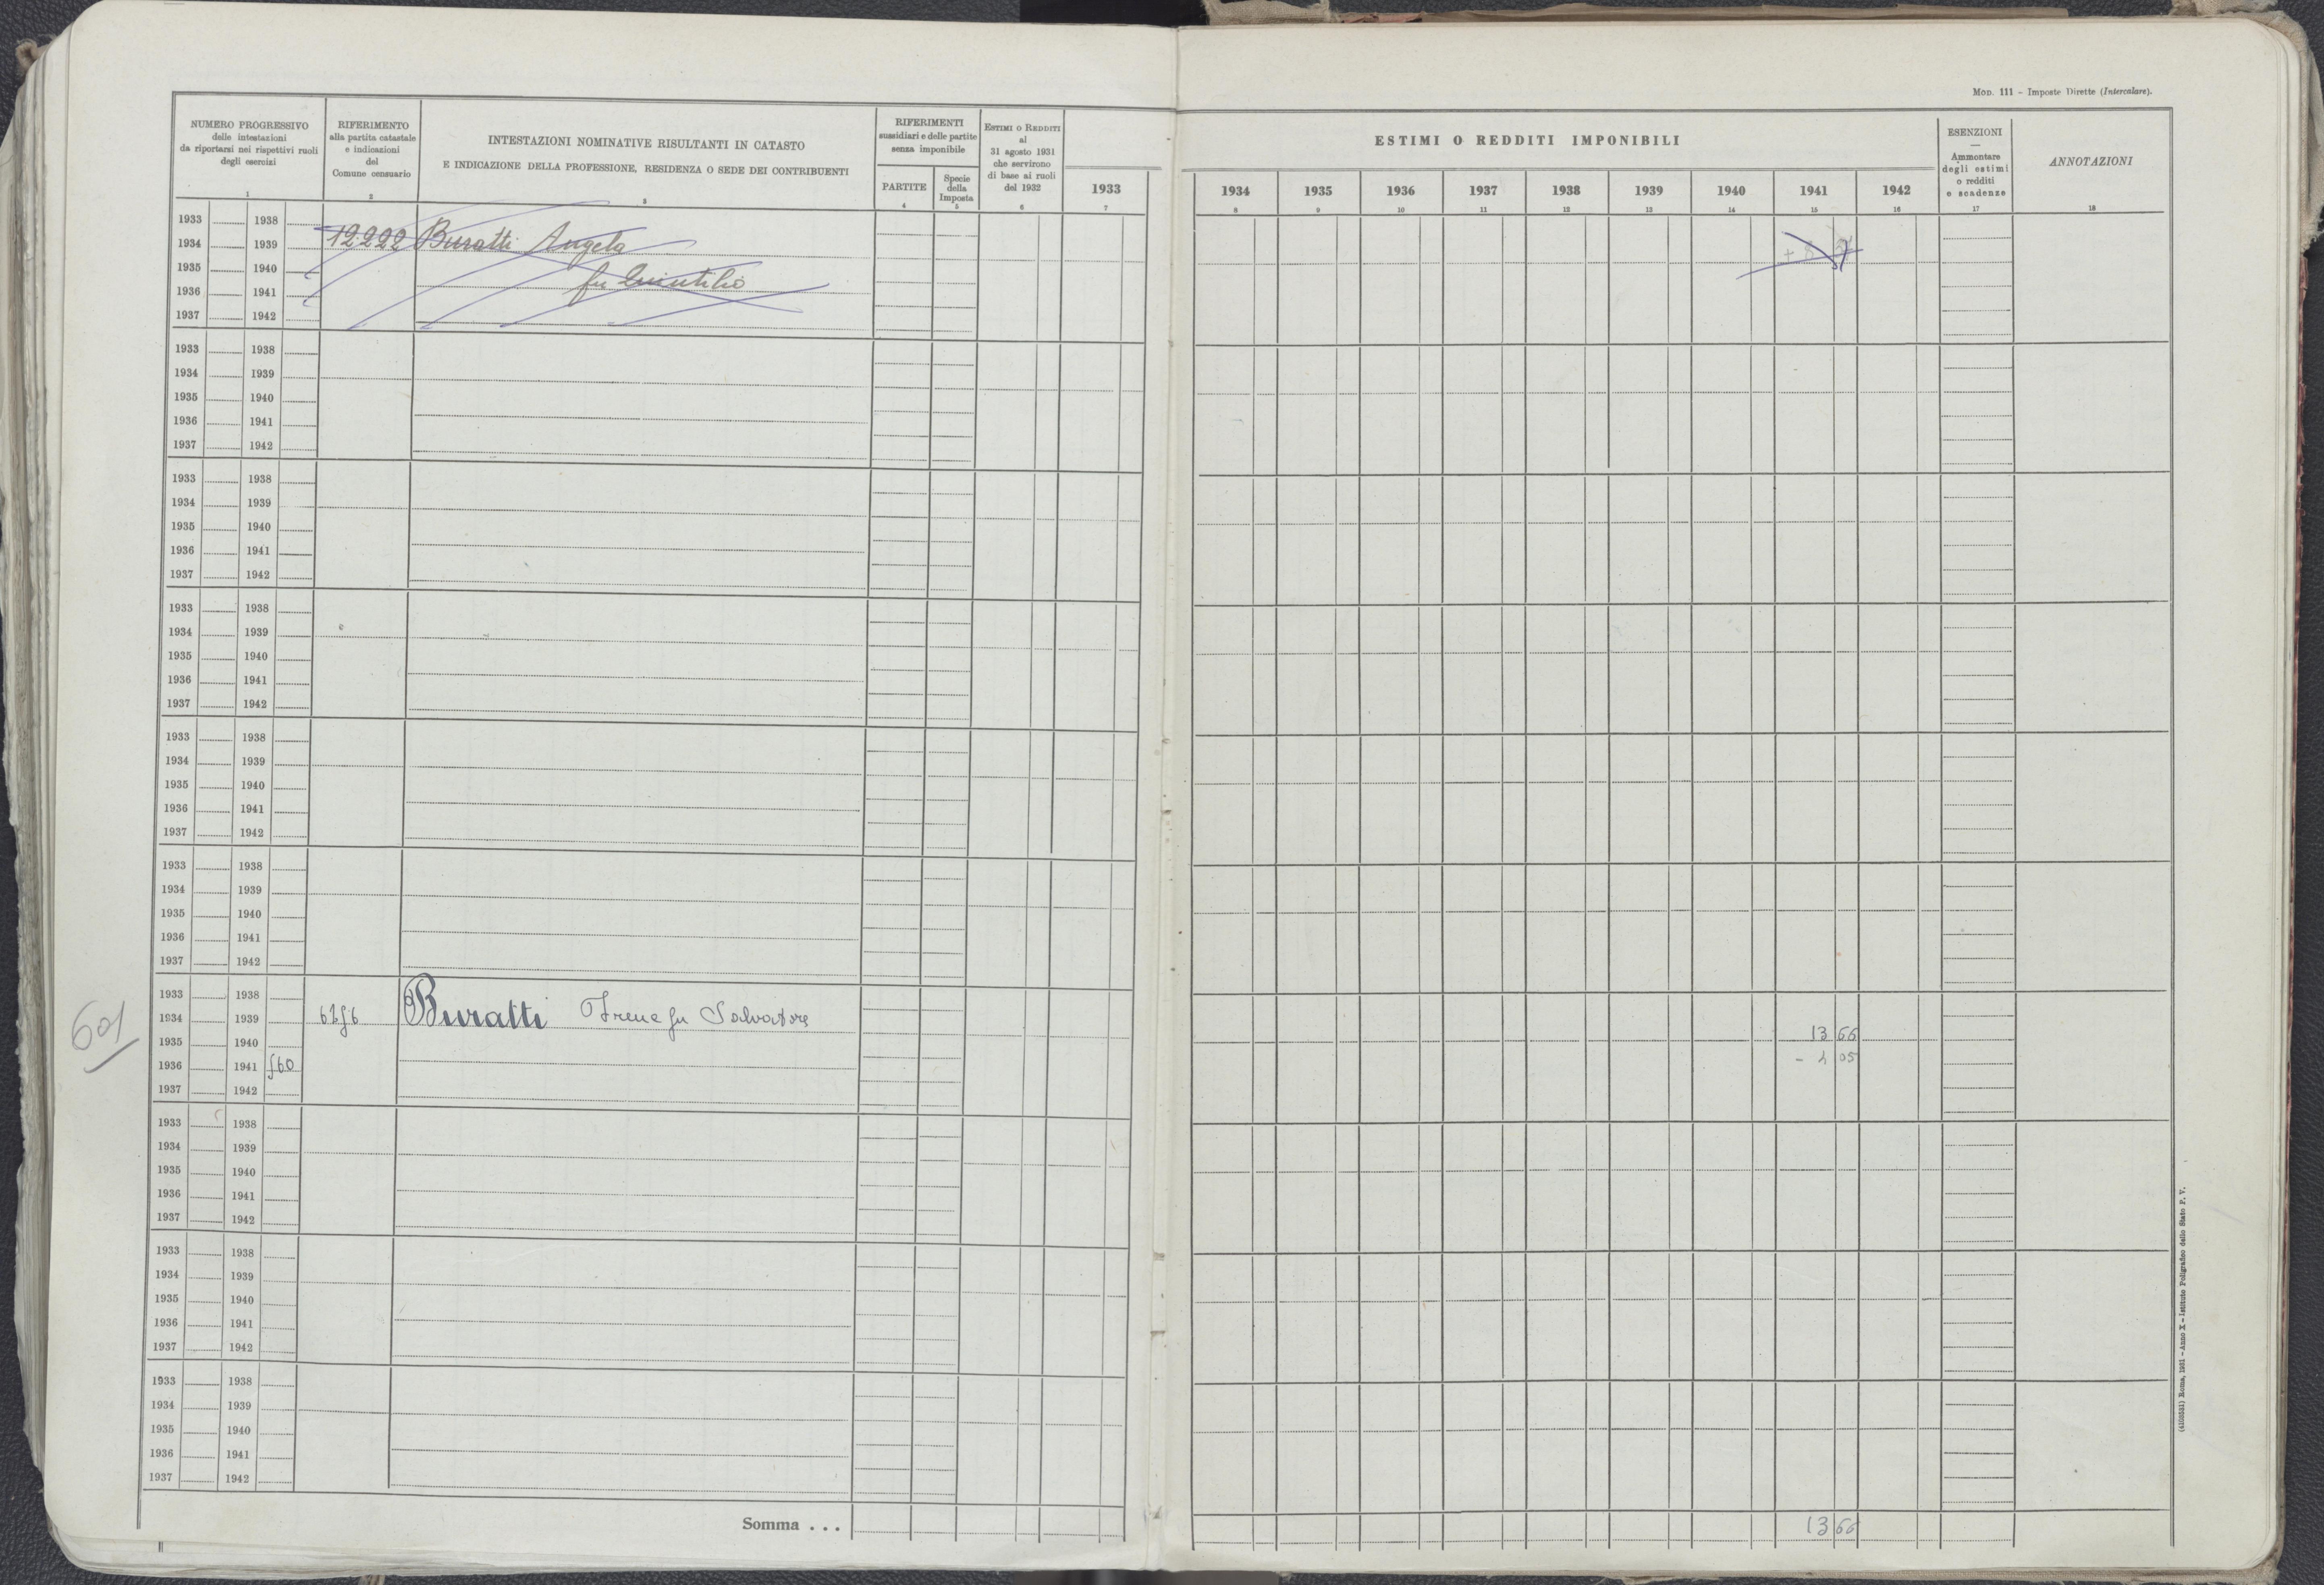 MOD. 111 – Imposte Dirette (Intercalare).
NUMERO PROGRESSIVO
delle intestazioni
da riportarsi nei rispettivi ruoli
degli esercizi
1
RIFERIMENTO
alla partita catastale
e indicazioni
del
Comune censuario
2
INTESTAZIONI NOMINATIVE RISULTANTI IN CATASTO
E INDICAZIONE DELLA PROFESSIONE, RESIDENZA O SEDE DEI CONTRIBUENTI
3
RIFERIMENTI
sussidiari e delle partite
senza imponibile
PARTITE
4
Specie
della
Imposta
5
ESTIMI O REDDITI
al
31 agosto 1931
che servirono
di base ai ruoli
del 1932
6
1933
7
ESTIMI O REDDITI IMPONIBILI
1934 1935 1936 1937 1938 1939 1940 1941 1942
8 9 10 11 12 13 14 15 16
ESENZIONI
—
Ammontare
degli estimi
o redditi
e scadenze
17
ANNOTAZIONI
18
1933 1938
1934 1939 12222 Buratti Angela
1935 1940
1936 1941 fu Quintilio
1937 1942
1933 1938
1934 1939
1935 1940
1936 1941
1937 1942
1933 1938
1934 1939
1935 1940
1936 1941
1937 1942
1933 1938
1934 1939
1935 1940
1936 1941
1937 1942
1933 1938
1934 1939
1935 1940
1936 1941
1937 1942
1933 1938
1934 1939
1935 1940
1936 1941
1937 1942
601
1933 1938
1934 1939 Buratti Irene fu Salvatore
1935 1940 13 66
1936 1941 560
1937 1942
1933 1938
1934 1939
1935 1940
1936 1941
1937 1942
1933 1938
1934 1939
1935 1940
1936 1941
1937 1942
1933 1938
1934 1939
1935 1940
1936 1941
1937 1942
Somma . . . 13 66
(4103531) Roma, 1931 – Anno X – Istituto Poligrafico dello Stato P. V.